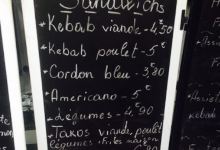 Sandwichs
*Kebab viande - 4,50
*Kebab poulet - 5€
*Cordon bleu - 3,80
*Americano - 5€
*Legumes - 4,90
*Takos viande, poulet
légumes - Frites maison